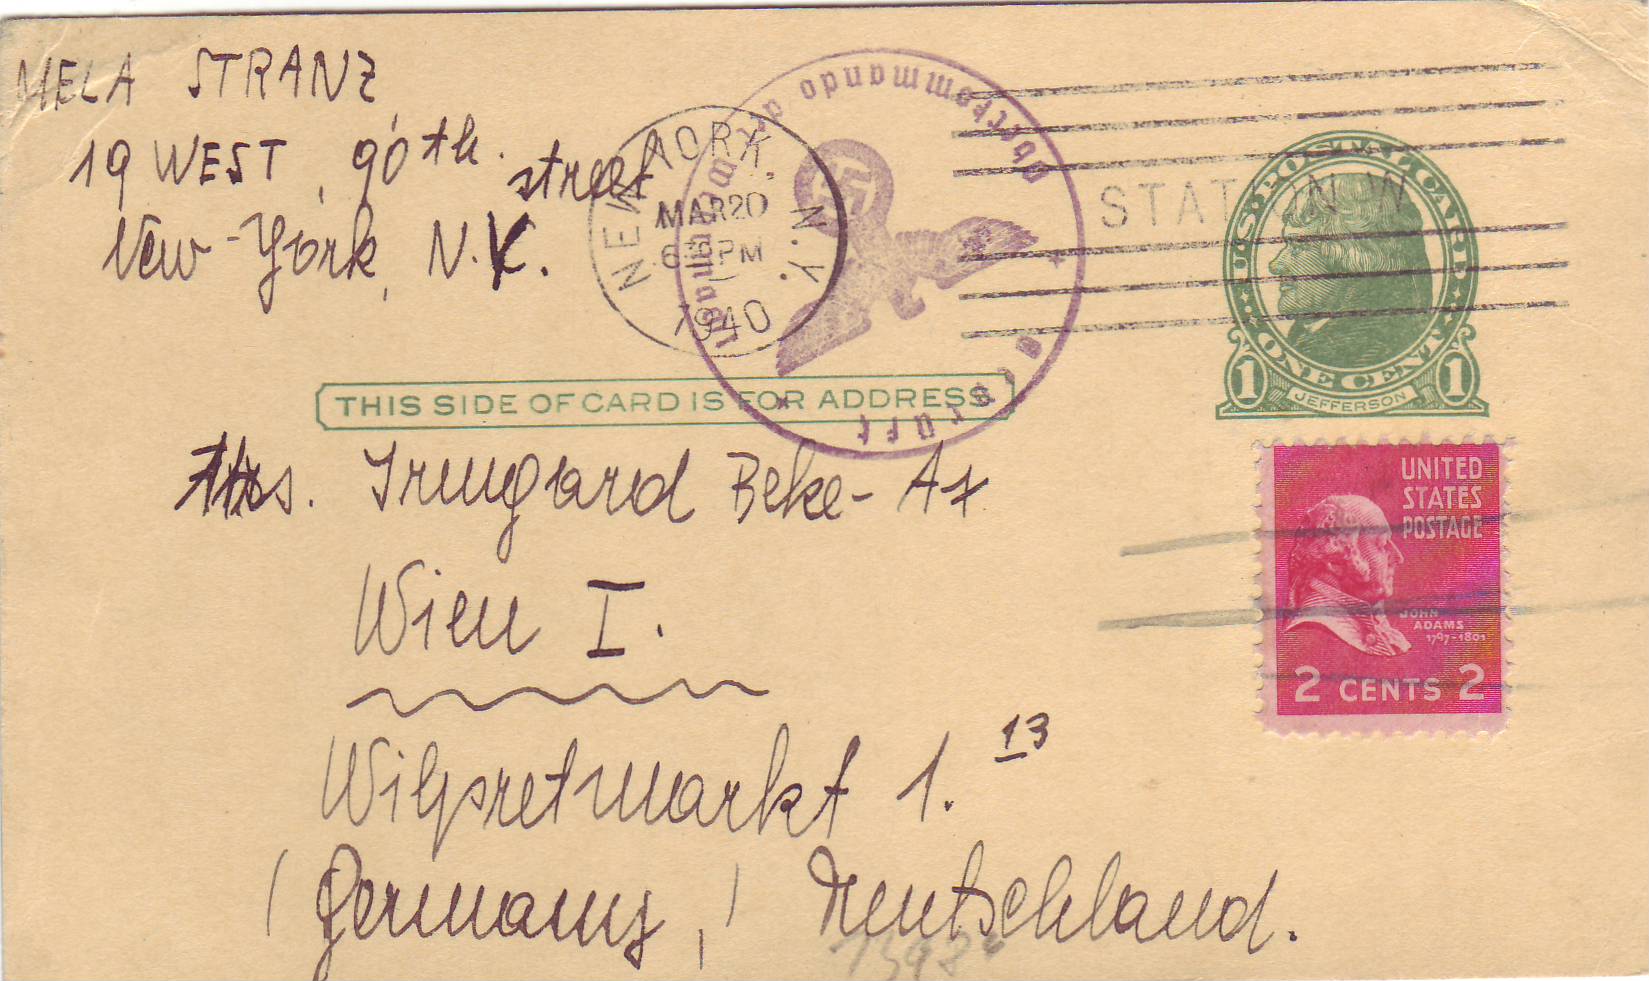 MELA STRANZ
19 WEST, 90th. street
New-York, N.Y.
NEW YORK, N.Y.
MAR 20
6 PM
1940
Oberkommando der Wehrmacht
Geprüft
STATION W
U.S. POSTAL CARD
ONE CENT
1 JEFFERSON 1
THIS SIDE OF CARD IS FOR ADDRESS
UNITED
STATES
POSTAGE
JOHN
ADAMS
1797-1801
2 CENTS 2
Mrs. Irmgard Beke-
Wien I.
Wilpretmarkt 1. 13
(Germany,) Deutschland.